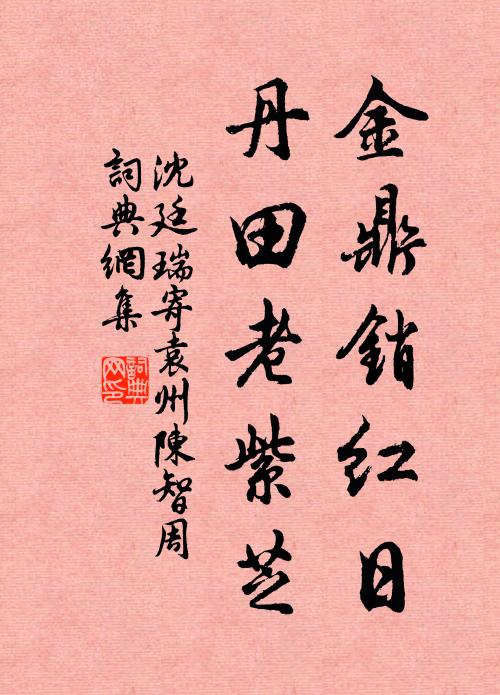 金鼎銷紅日
丹田老紫芝
沈廷瑞寄袁州陳智周
詞典網集
詞典網印